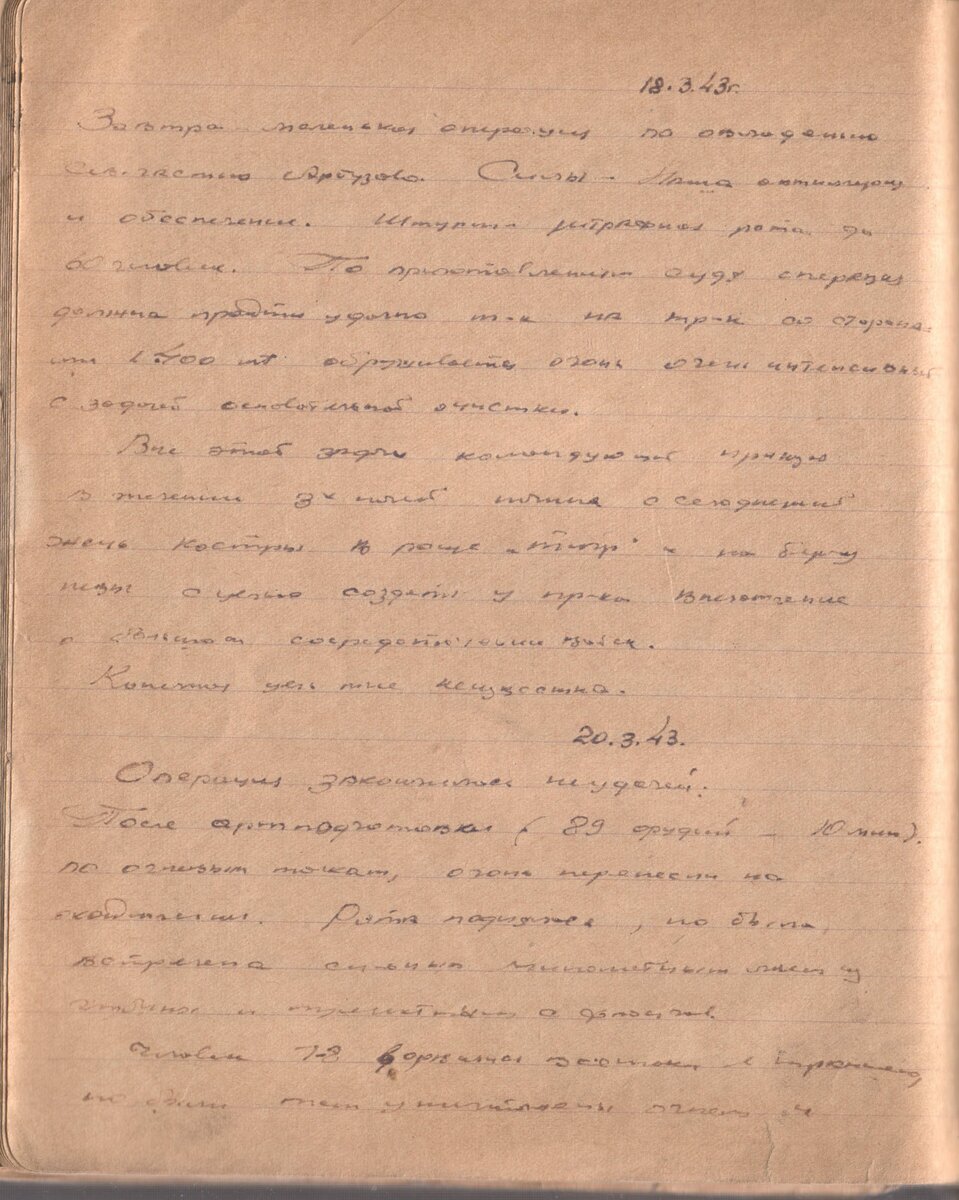 18.3.43г.
Завтра маленькая операция по овладению
сев. частью Арбузово. Силы – Наша активизация
и обеспечение. Штурм – штрафная рота до
60 человек. По приготовлениям судя операция
должна пройти удачно т-к на пр-к со стороны
1400 обрушивается огонь очень интенсивный
с задачей основательной очистки.
Вне этой задачи командующий приказал
в течении 3х ночей начиная с сегодняшней
жечь костры в роще „тигр" и на берегу
невы с целью создать у пр-ка впечатление
о большом сосредоточении войск.
Конечная цель мне неизвестна.
20.3.43.
Операция закончилась неудачей.
После артподготовки (89 орудий – 10 мин).
по огневым точкам, огонь перенесли на
окаймление. Рота поднялась, но была
встречена сильным минометным огнем из
глубины и пулеметным с флангов.
Человек 7-8 ворвались в траншею,
но были там уничтожены огнем и